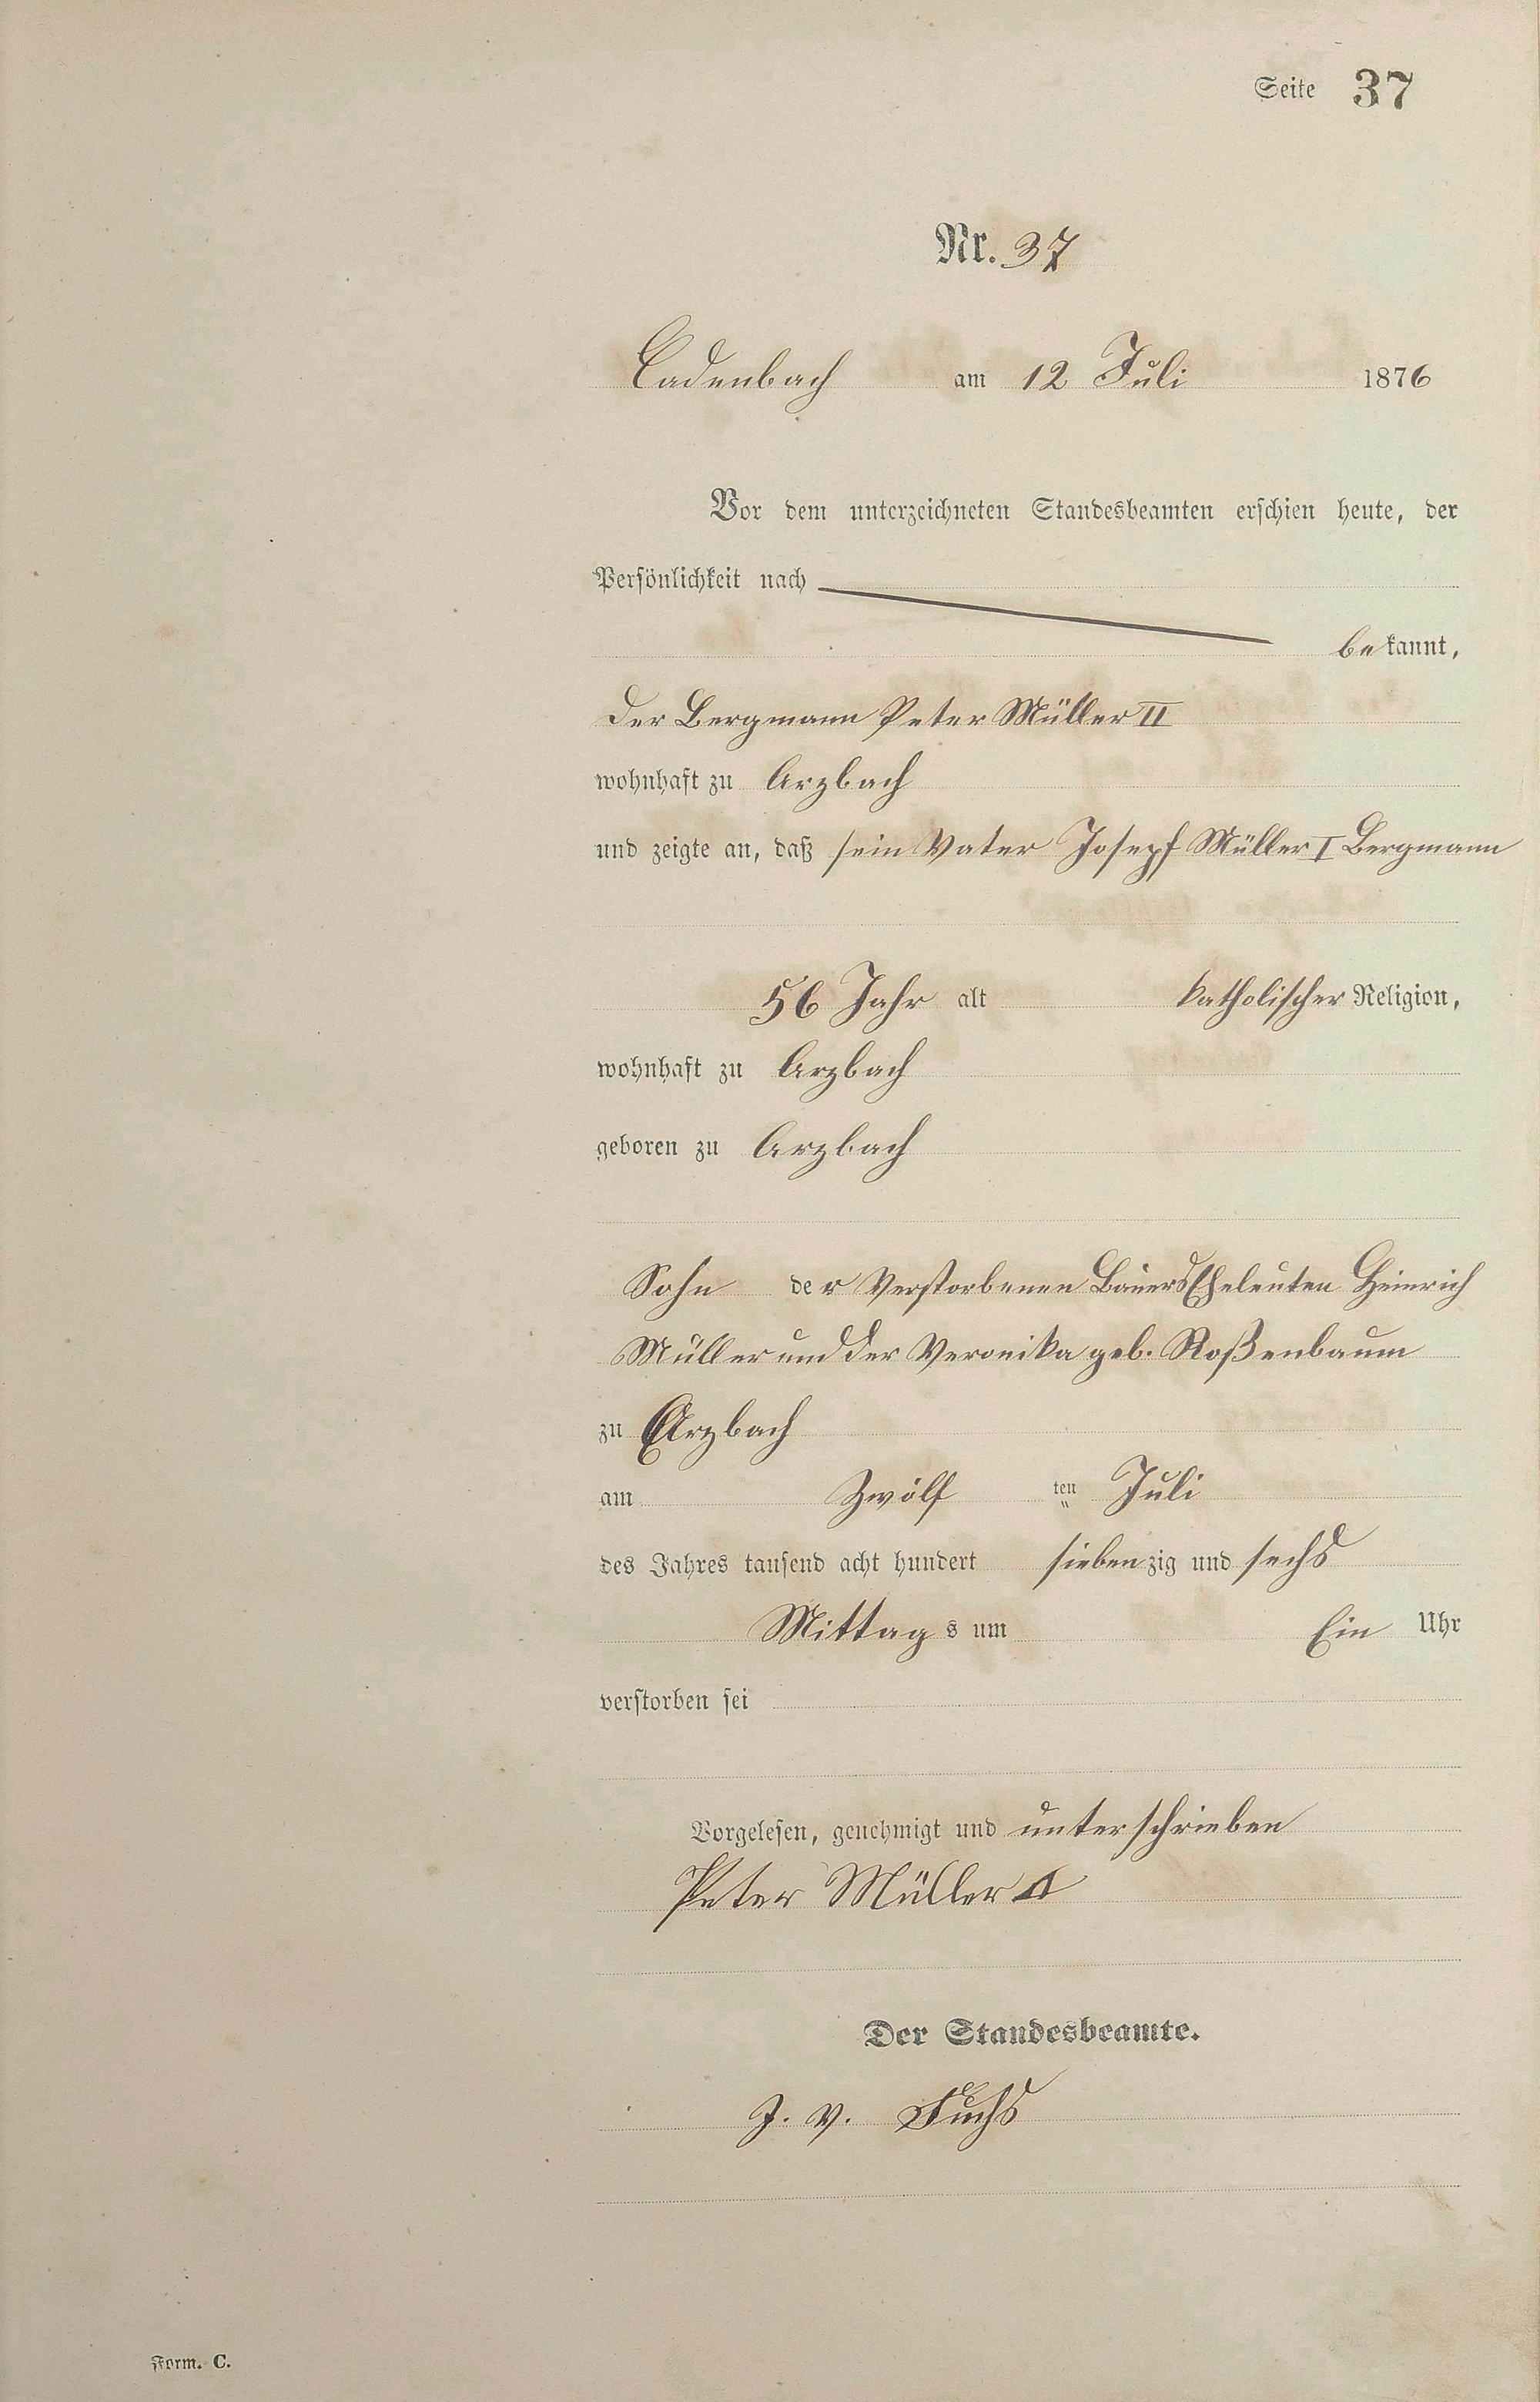 Seite 37
Nr. 37
Cadenbach am 12 Juli 1876
Vor dem unterzeichneten Standesbeamten erschien heute, der
Persönlichkeit nach
bekannt,
der Bergmann Peter Müller II
wohnhaft zu Arzbach
und zeigte an, daß sein Vater Josepf Müller I Bergmann
56 Jahr alt katholischer Religion,
wohnhaft zu Arzbach
geboren zu Arzbach
Sohn der Verstorbenen Bauers Eheleuten Heinrich
Müller und der Veronika geb. Roßenbaum
zu Arzbach
am Zwölf ten Juli
des Jahres tausend acht hundert siebenzig und sechs
Mittags um Ein Uhr
verstorben sei
Vorgelesen, genehmigt und unterschrieben
Peter Müller
Der Standesbeamte.
J. V. Fuchs
Form. C.